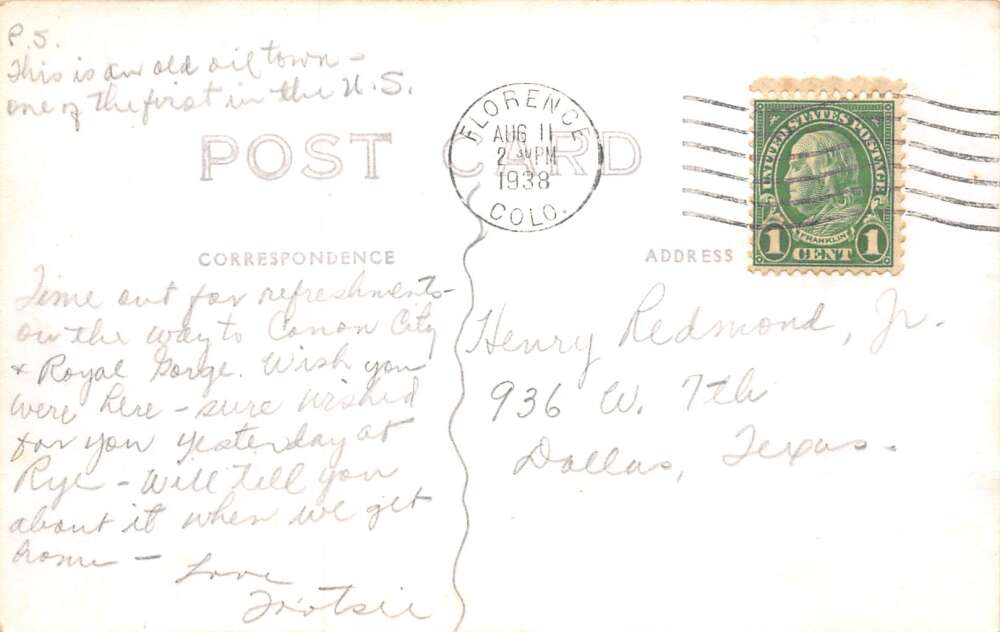 P.S.
This is an old oil town -
one of the first in the U.S.
POST CARD
FLORENCE
AUG 11
2 PM
1938
COLO.
UNITED STATES POSTAGE
FRANKLIN
1 CENT 1
CORRESPONDENCE
ADDRESS
Time out for refreshments -
on the way to Canon City
& Royal Gorge. Wish you
were here - sure wished
for you yesterday at
Rye - Will tell you
about it when we get
home -
Love
Henry Redmond, Jr.
936 W. 7th
Dallas, Texas.